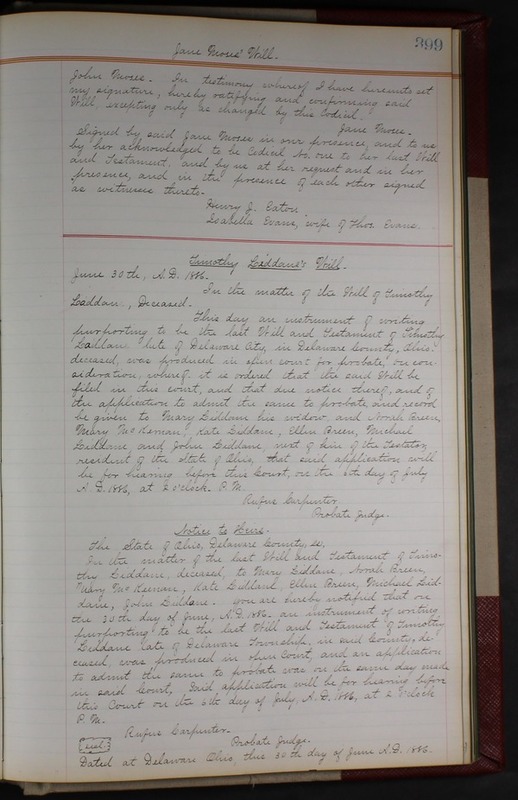 399
Jane Moses' Will.
John Moses. In testimony whereof I have hereunto set
my signature, hereby ratifying and confirming said
Will, excepting only as changed by this Codicil.
Jane Moses.
Signed by said Jane Moses in our presence, and to us
by her acknowledged to be Codicil No. one to her last Will
and Testament, and by us at her request and in her
presence, and in the presence of each other signed
as witnesses thereto.
Henry J. Eaton.
Isabella Evans, wife of Thos. Evans.
Timothy Liddane's Will.
June 30th, A.D. 1886.
In the matter of the Will of Timothy
Liddane, Deceased.
This day an instrument of writing
purporting to be the last Will and Testament of Timothy
Liddane late of Delaware City, in Delaware County, Ohio,
deceased, was produced in open court for probate, on con
sideration, whereof it is ordered that the said Will be
filed in this court, and that due notice thereof, and of
the application to admit the same to probate, and record
be given to Mary Liddane his widow, and Norah Breen,
Mary McKeenan, Kate Liddane, Ellen Breen, Michael
Liddane and John Liddane, next of kin of the Testator,
resident of the State of Ohio, that said application will
be for hearing before this Court, on the 6th day of July
A.D. 1886, at 2 o'clock P.M.
Rufus Carpenter
Probate Judge.
Notice to Heirs.
The State of Ohio, Delaware County, ss,
In the matter of the last Will and Testament of Timo-
thy Liddane, deceased, to Mary Liddane, Norah Breen,
Mary McKeenan, Kate Liddane, Ellen Breen, Michael Lid-
dane, John Liddane. You are hereby notified that on
the 30th day of June, A.D. 1886. an instrument of writing
purporting to be the last Will and Testament of Timothy
Liddane late of Delaware Township, in said County, de-
ceased, was produced in open Court, and an application
to admit the same to probate was on the same day made
in said Court, Said application will be for hearing before
this Court on the 6th day of July, A.D. 1886, at 2 o'clock
P.M.
Rufus Carpenter.
seal
Probate Judge.
Dated at Delaware Ohio, this 30th day of June A.D. 1886.